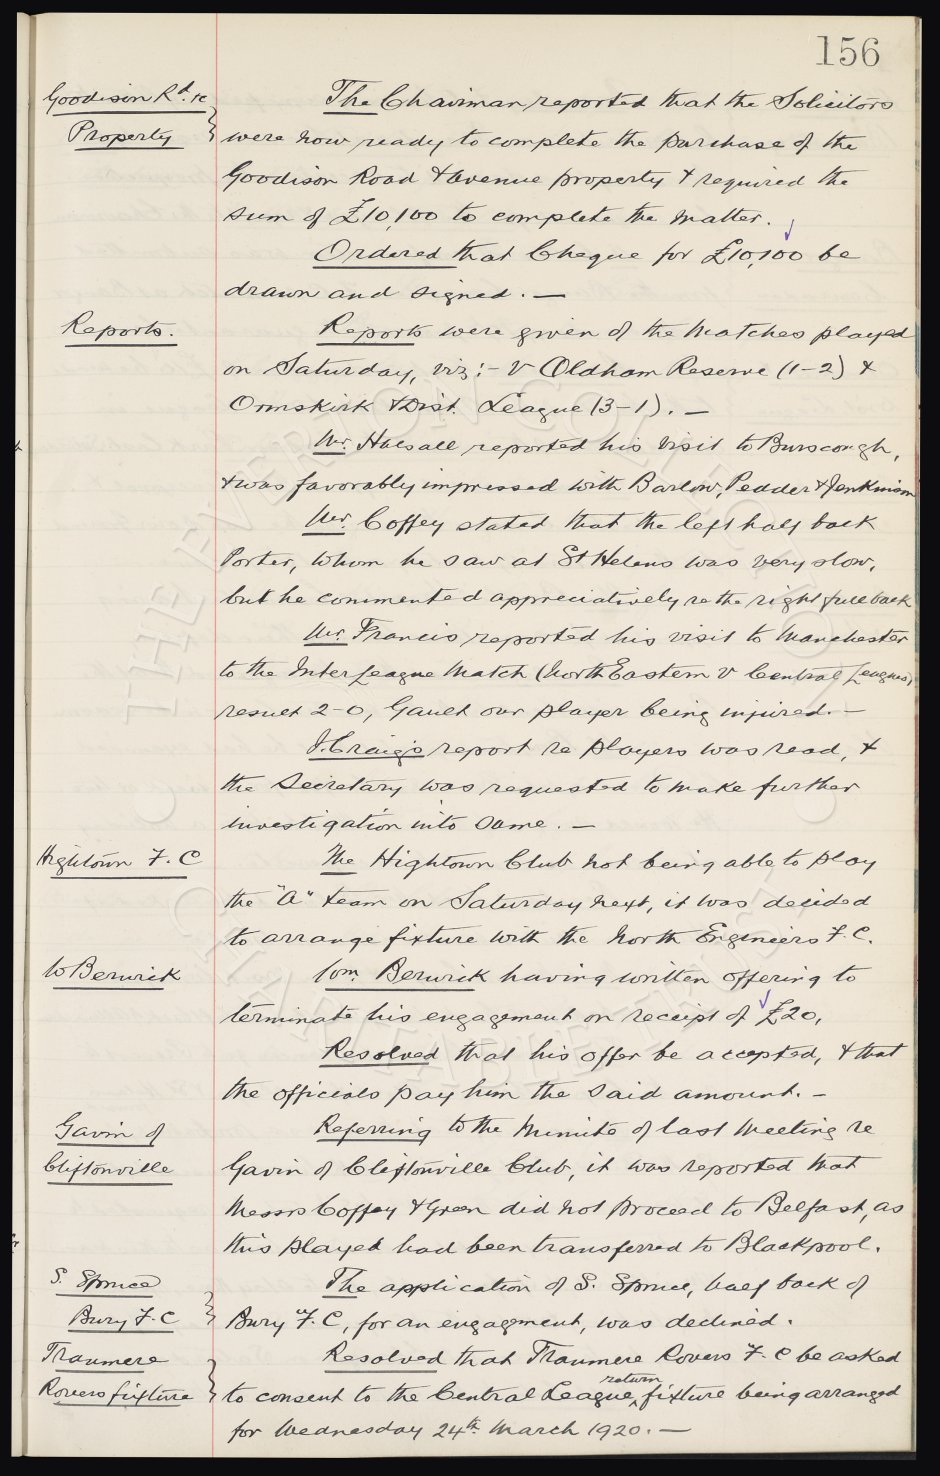 156
Goodison Rd. re
Property
The Chairman reported that the Solicitors
were now ready to complete the purchase of the
Goodison Road & Avenue property & required the
sum of £10,100 to complete the matter.
Ordered that Cheque for £10,100 be
drawn and signed. —
Reports.
Reports were given of the Matches played
on Saturday, viz:- V Oldham Reserve (1-2) &
Ormskirk & Dist. League (3-1). —
Mr. Halsall reported his visit to Burscough,
& was favorably impressed with Barlow, Pedder & Jenkinson
Mr. Coffey stated that the left half back
Porter, whom he saw at St Helens was very slow,
but he commented appreciatively re the right full back
Mr. Francis reported his visit to Manchester
to the InterLeague Match (North Eastern V Central Leagues)
result 2-0, Gault our player being injured. —
J. Craig's report re players was read, &
the Secretary was requested to make further
investigation into same. —
Hightown F. C
The Hightown Club not being able to play
the "A" team on Saturday next, it was decided
to arrange fixture with the North Engineers F. C.
W Berwick
Wm. Berwick having written offering to
terminate his engagement on receipt of £20,
Resolved that his offer be accepted, & that
the officials pay him the said amount. —
Gavin of
Cliftonville
Referring to the Minute of last Meeting re
Gavin of Cliftonville Club, it was reported that
Messrs Coffey & Green did not proceed to Belfast, as
this played had been transferred to Blackpool.
S. Spruce
Bury F. C
The application of S. Spruce, half back of
Bury F. C, for an engagement, was declined.
Tranmere
Rovers fixture
Resolved that Tranmere Rovers F. C be asked
to consent to the Central League return fixture being arranged
for Wednesday 24th March 1920. —
THE EVERTON COLLECTION
CHARITABLE TRUST